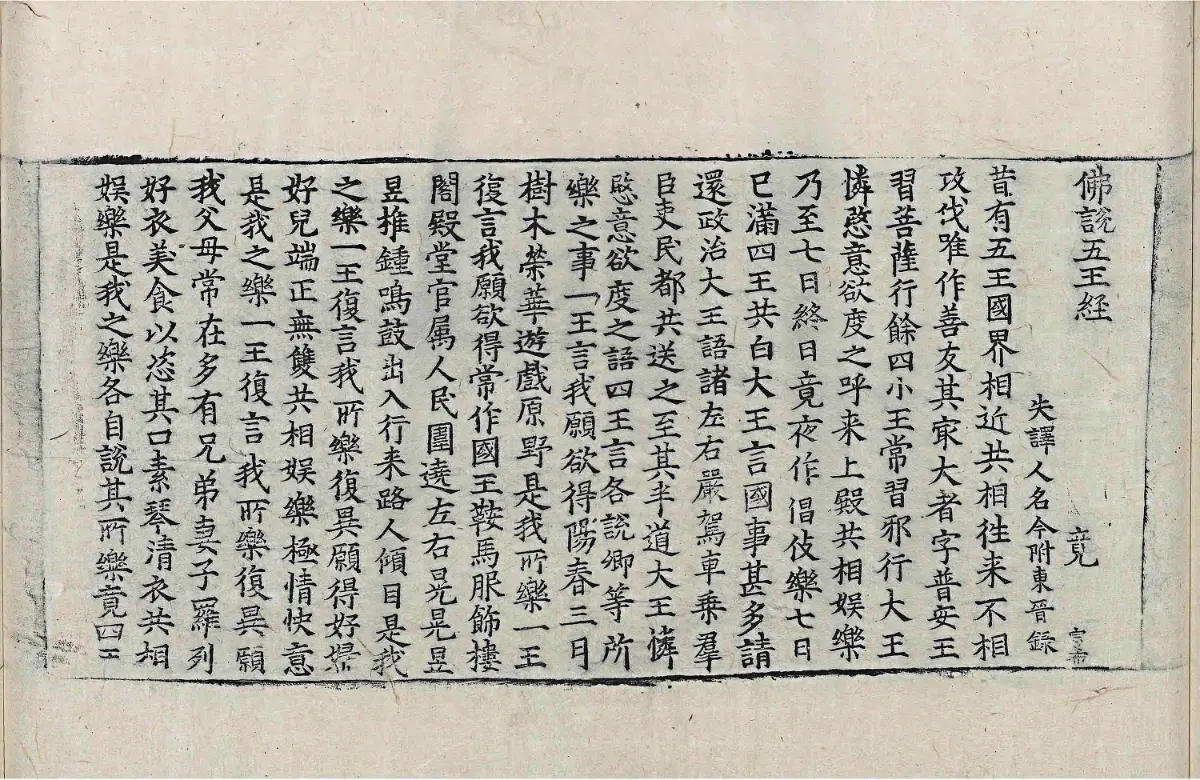 佛說五王経　竟
失譯人名今附東晉録
昔有五王國界相近共相往来不相
攻伐唯作善友其㝡大者字普安王
習菩薩行餘四小王常習邪行大王
憐愍意欲度之呼来上殿共相娱樂
乃至七日終日竟夜作倡伎樂七日
已滿四王共白大王言國事甚多請
還政治大王語諸左右嚴駕車乗羣
臣吏民都共送之至其半道大王憐
愍意欲度之語四王言各說卿等所
樂之事一王言我願欲得陽春三月
樹木榮華遊戲原野是我所樂一王
復言我願欲得常作國王鞍馬服飾樓
閣殿堂官属人民圍遶左右晃晃昱
昱推鍾鳴鼓出入行来路人傾目是我
之樂一王復言我所樂復異願得好婦
好兒端正無雙共相娱樂極情快意
是我之樂一王復言我所樂復異願
我父母常在多有兄弟妻子羅列
好衣美食以恣其口素琴清衣共相
娱樂是我之樂各自說其所樂竟四王